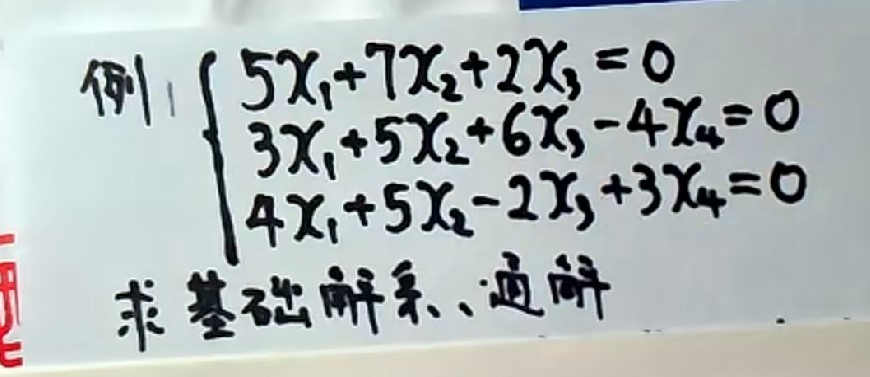 例1 5x₁+7x₂+2x₃=0
3x₁+5x₂+6x₃-4x₄=0
4x₁+5x₂-2x₃+3x₄=0
求基础解系、通解